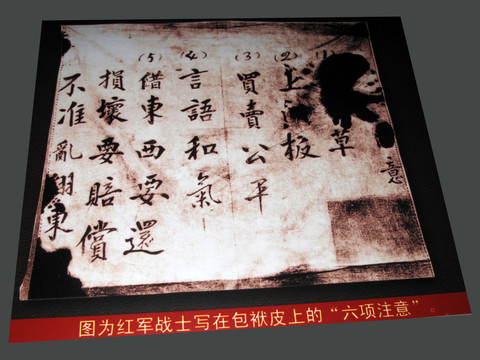 意
(1) 草
(2) 上 板
(3) 買賣公平
(4) 言語和氣
(5) 借東西要還
損壞要賠償
不准亂 東
图为红军战士写在包袱皮上的“六项注意”